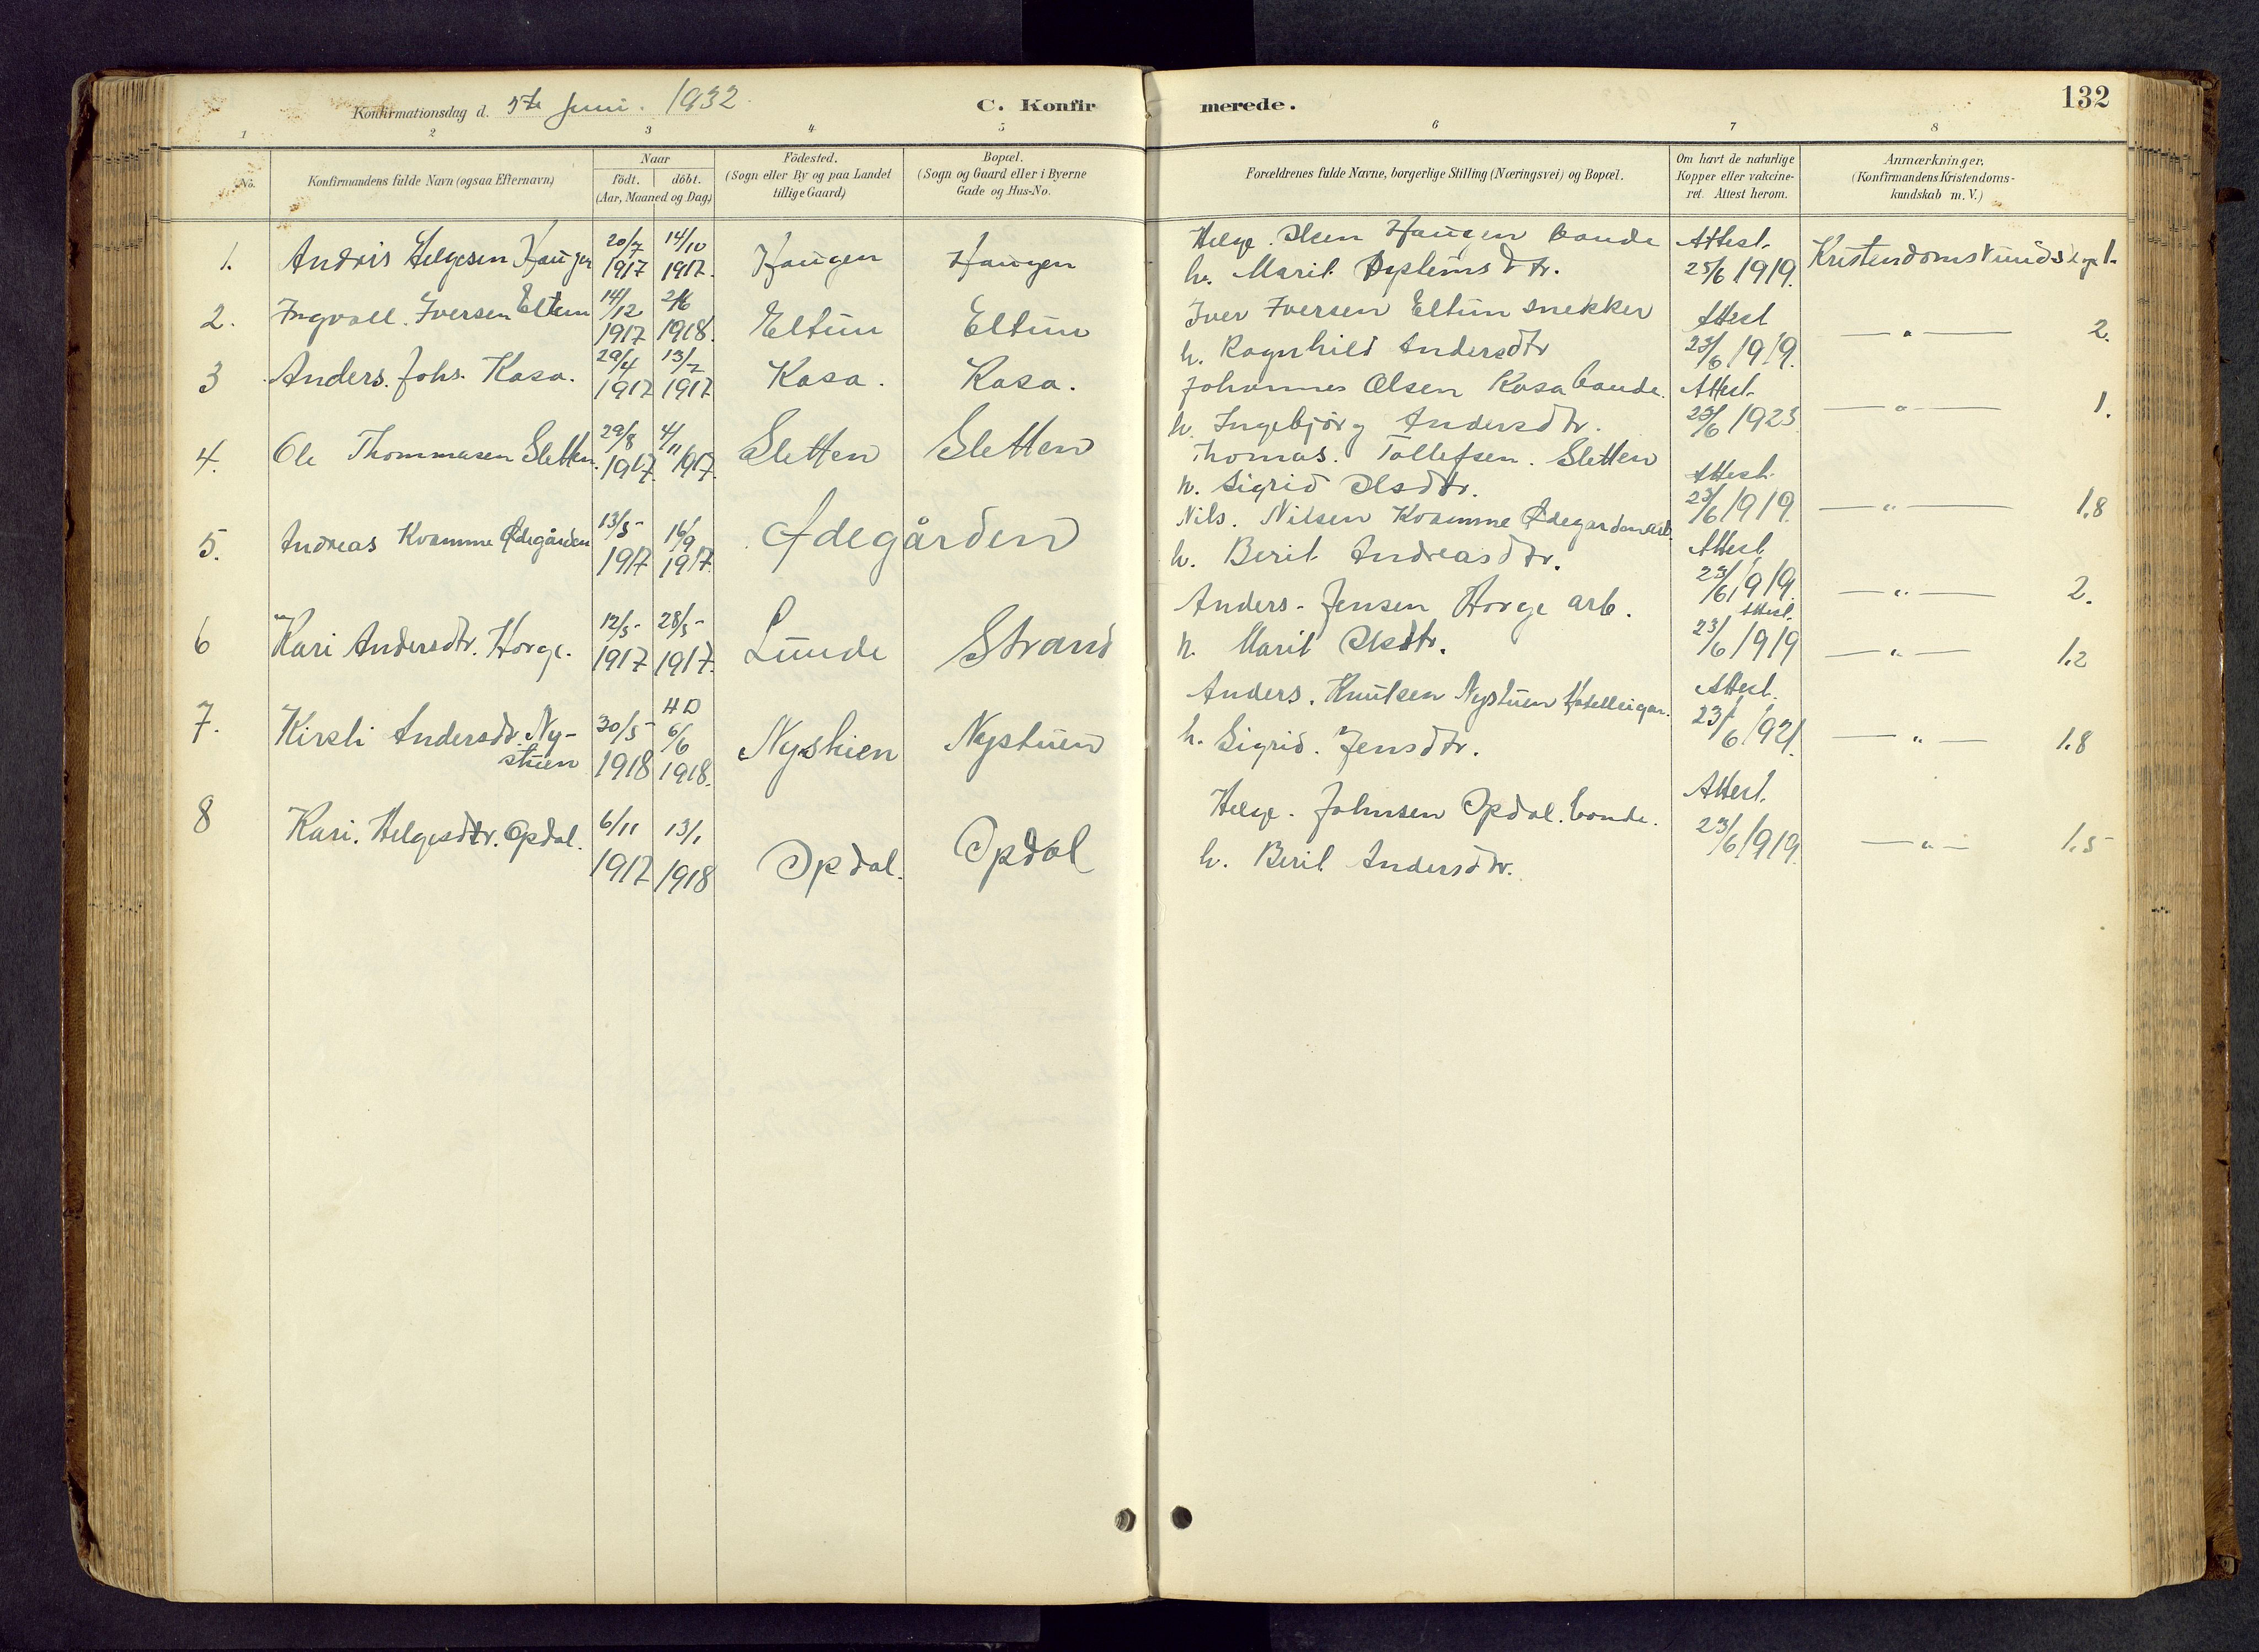 Konfirmationsdag d. 5te Juni. 1932.
C. Konfirmerede.
132
1 2 3 4 5 6 7 8
No.
Konfirmandens fulde Navn (ogsaa Efternavn)
Naar
födt. döbt.
(Aar, Maaned og Dag.)
Födested.
(Sogn eller By og paa Landet
tillige Gaard)
Bopæl.
(Sogn og Gaard eller i Byerne
Gade og Hus-No.
Forældrenes fulde Navne, borgerlige Stilling (Næringsvei) og Bopæl.
Om havt de naturlige
Kopper eller vakcine-
ret. Attest herom.
Anmærkninger.
(Konfirmandens Kristendoms-
kundskab m. V.)
1. Andris Helgesen Haugen 20/7 1917 14/10 1917. Haugen Haugen
Helge. Olsen Haugen bonde
h. Marit dtr.
Attest. 25/6 1919. 1.
2. Ingvall. Iversen Eltun 14/12 1917 2/6 1918. Eltun Eltun
Iver Iversen Eltun snekker
h. Ragnhild Andersdtr
Attest 23/6 1919. — " — 2.
3 Anders. Johs. Kasa. 29/4 1917 13/7 1917 Kasa. Kasa.
Johannes Olsen Kasa bonde.
h. Ingebjørg Andersdtr.
Attest. 23/6 1923 — " — 1.
4. Ole Thommasen Sletten. 29/8 1917. 4/11 1917. Sletten Sletten
Thomas. Tollefsen. Sletten
h. Sigrid Olsdtr.
Attest. 23/6 1919. — " — 1.8
5. Andreas Kvamme Ødegården 13/5- 1917 16/9 1917. Ødegården
Nils. Nilsen Kvamme Ødegarden arb.
h. Berit Andreasdtr.
Attest 23/6 1919. — " — 2.
6 Kari Andersdtr. Horge. 12/5- 1917 28/5- 1917. Lunde Strand
Anders. Jensen Horge arb.
h. Marit Olsdtr.
Attest. 23/6 1919 — " — 1.2
7. Kirsti Andersdtr. Ny-
stuen 30/5- 1918 HD 6/6 1918. Nystuen Nystuen
Anders. Knutsen Nystuen Hotelleigar.
h. Sigrid. Jensdtr.
Attest. 23/6 1921. — " — 1.8
8 Kari. Helgesdtr. Opdal. 6/11 1917 13/1 1918 Opdal. Opdal
Helge. Johnsen Opdal. bonde.
h. Berit Andersdtr.
Attest. 23/6 1919. — " — 1.5